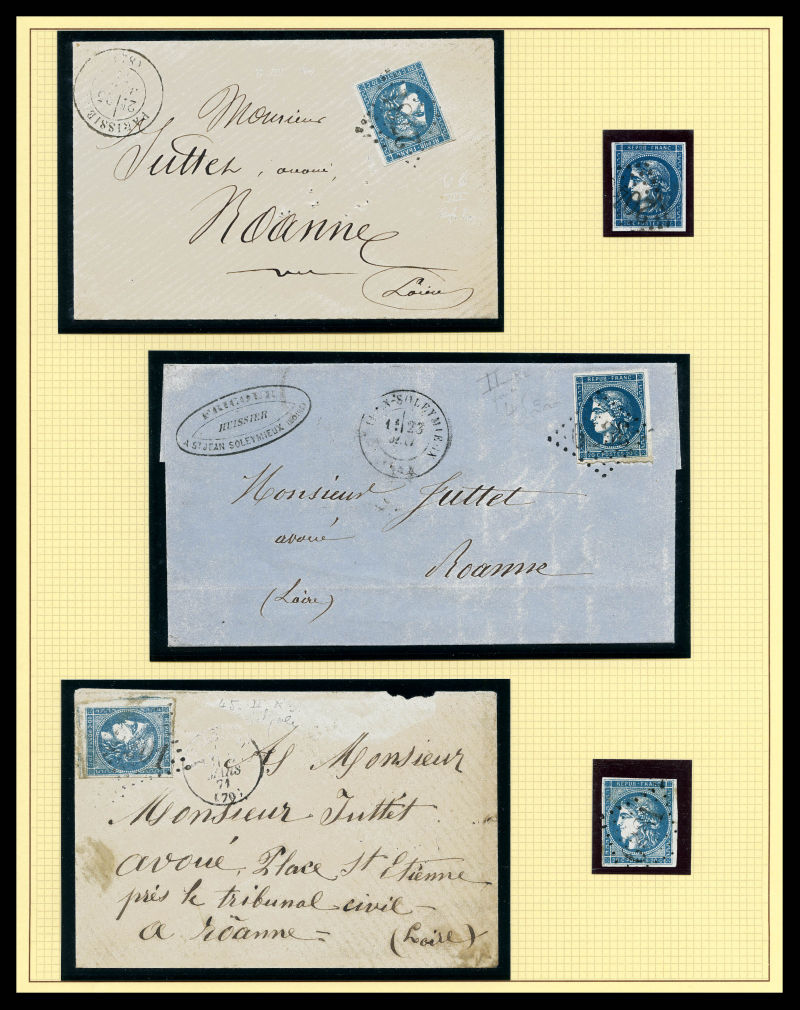 Monsieur
Juttet, avoué,
Roanne
(Loire)
REPUB. FRANC.
REPUB. FRANC
HUISSIER
A ST JEAN SOLEYMIEUX (LOIRE)
JEAN-SOLEYMIEUX
23
II
REPUB. FRANC.
20 C. POSTES 20 C.
Monsieur Juttet
avoué
Roanne
(Loire)
45
MARS
71
(79)
A Monsieur
Monsieur Juttet
avoué, Place St Etienne
près le tribunal civil
a roanne = (Loire)